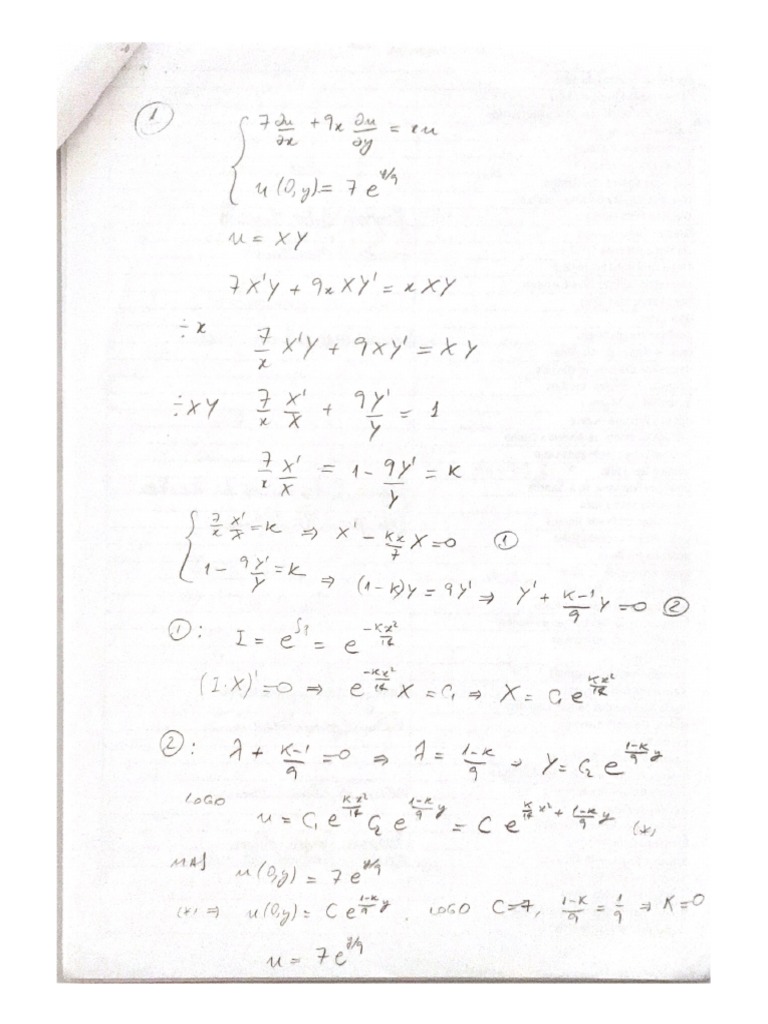 ①
{ 7 ∂u/∂x + 9x ∂u/∂y = xu
u(0,y) = 7e^{y/9}
u = XY
7X'Y + 9xXY' = xXY
÷x 7/x X'Y + 9XY' = XY
÷XY 7/x X'/X + 9Y'/Y = 1
7/x X'/X = 1 - 9Y'/Y = K
{ 7/x X'/X = K ⇒ X' - Kx/7 X = 0 ①
1 - 9Y'/Y = K ⇒ (1-K)Y = 9Y' ⇒ Y' + K-1/9 Y = 0 ②
①: I = e^{∫9} = e^{-Kx²/14}
(I·X)' = 0 ⇒ e^{-Kx²/14} X = C₁ ⇒ X = C₁e^{Kx²/14}
②: λ + K-1/9 = 0 ⇒ λ = 1-K/9 ⇒ Y = C₂e^{1-K/9 y}
LOGO u = C₁e^{Kx²/14} C₂e^{1-K/9 y} = Ce^{K/14 x² + 1-K/9 y} (*)
MAS u(0,y) = 7e^{y/9}
(*) ⇒ u(0,y) = Ce^{1-K/9 y}. LOGO C=7, 1-K/9 = 1/9 ⇒ K=0
u = 7e^{y/9}